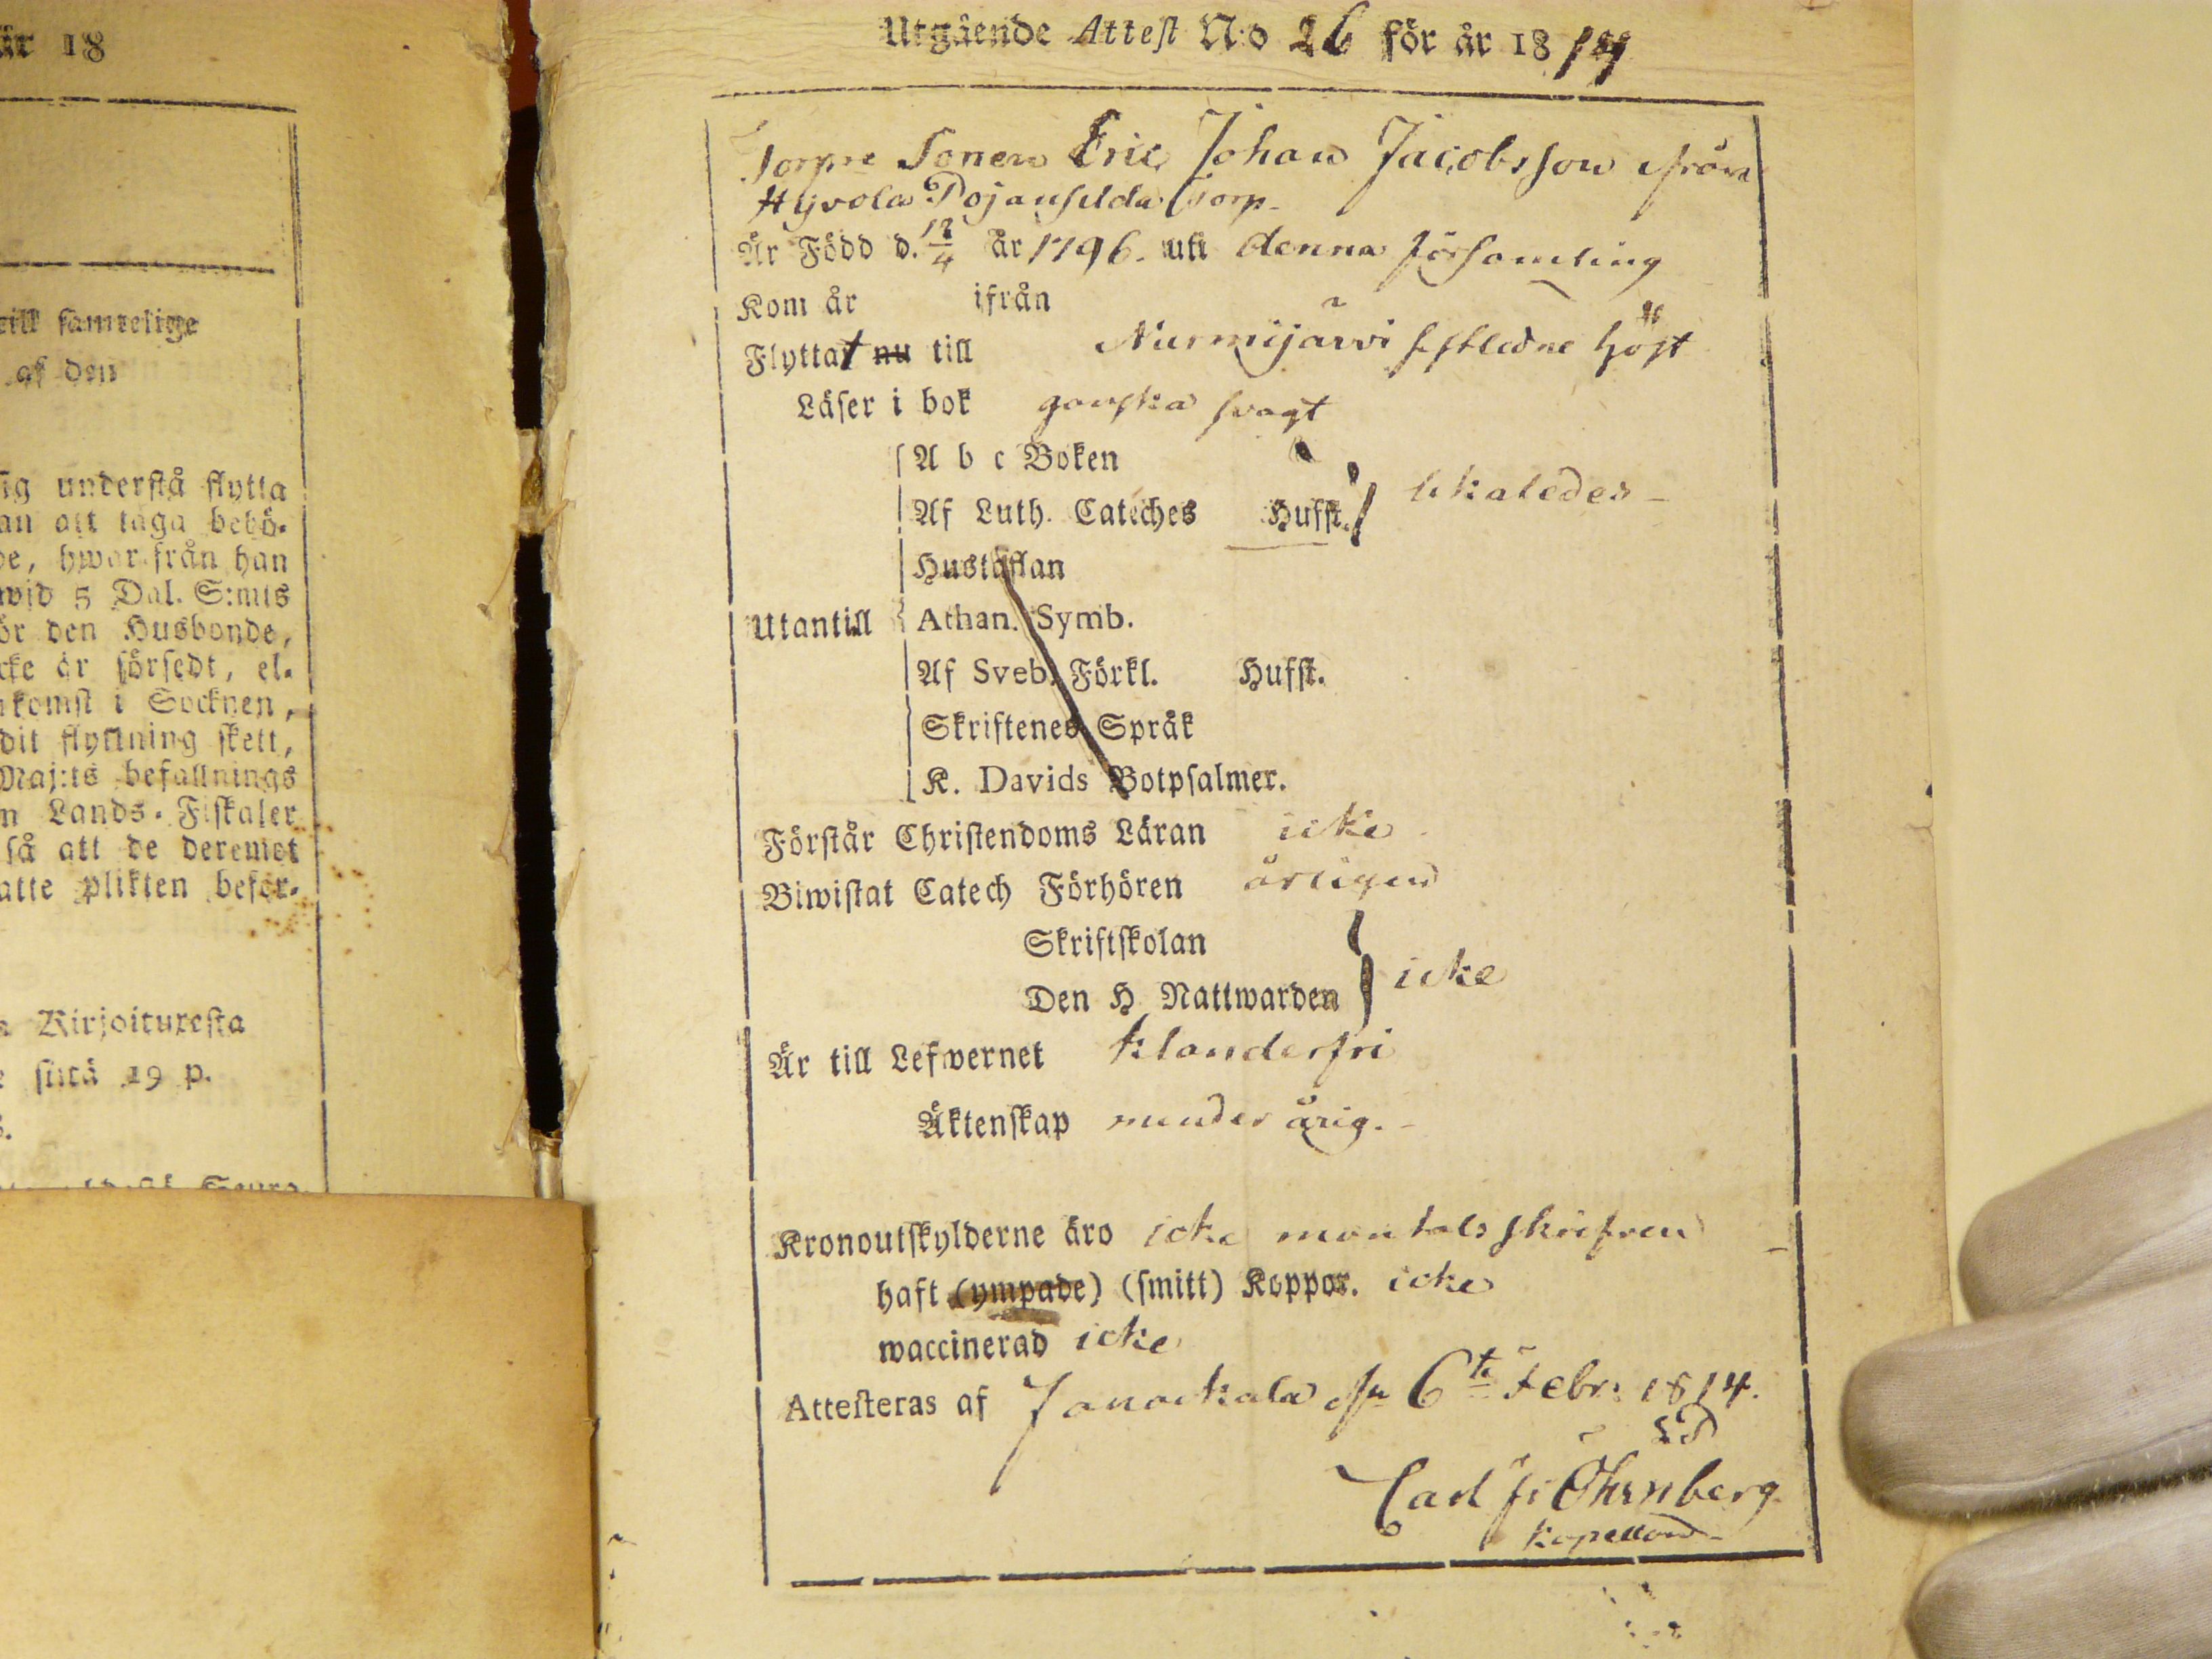 är 18
till samtelige
af den
sig understå flytta
an att taga behö-
de, hwar från han
wid 5 Dal. S:mts
ör den Husbonde,
cke är försedt, el-
nkomst i Socknen,
dit flyttning skett,
Maj:ts befallnings
n Lands-Fiskaler
så att de deremot
atte plikten beför-
Kirjoituxesta
siitä 19 p.
Utgående Attest N:o 26 för år 1814
Torpare Sonen Eric Johan Jacobsson från
Hyvola torp
Är Född d. 12/4 år 1796. uti denna församling
Kom år ifrån
Flyttat nu till Nurmijärvi sistledne höst
Läser i bok ganska svagt
A b c Boken
Af Luth. Cateches Hufst. likaledes
Hustaflan
Utantill Athan. Symb.
Af Sveb. Förkl. Hufst.
Skriftenes Språk
K. Davids Botpsalmer.
Förstår Christendoms Läran icke
Biwistat Catech Förhören årligen
Skriftskolan
Den H Nattwarden icke
Är till Lefwernet klanderfri
Äktenskap minderårig.
Kronoutskylderne äro icke mantals skrifven
haft (ympade) (smitt) Koppor. icke
waccinerad icke
Attesteras af Janackala 6te Febr: 1814.
Carl Öhrnberg
kapellan